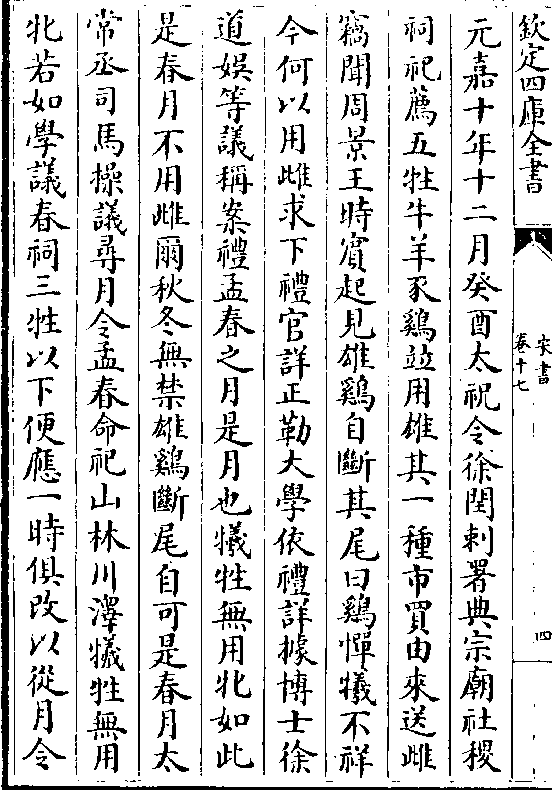 欽定四庫全書
宋書
卷十七
四
元嘉十年十二月癸酉太祝令徐閏刺署典宗廟社稷
祠祀薦五牲牛羊豕鷄竝用雄其一種市買由來送雌
竊聞周景王時賔起見雄鷄自斷其尾曰鷄憚犧不祥
今何以用雌求下禮官詳正勒大學依禮詳據博士徐
道娯等議稱案禮孟春之月是月也犧牲無用牝如此
是春月不用雌爾秋冬無禁雄鷄斷尾自可是春月太
常丞司馬操議尋月令孟春命祀山林川澤犧牲無用
牝若如學議春祠三牲以下便應一時俱改以從月令